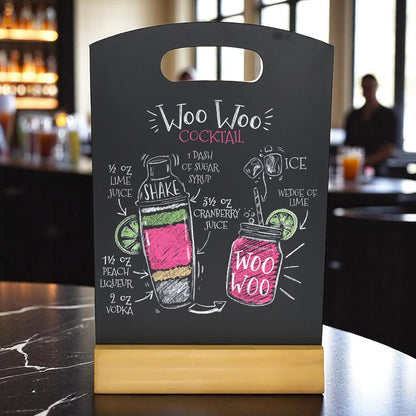 Woo Woo
COCKTAIL
1 DASH
OF SUGAR
SYRUP
ICE
SHAKE
½ OZ
LIME
JUICE
3½ OZ
CRANBERRY
JUICE
WEDGE OF
LIME
1½ OZ
PEACH
LIQUEUR
2 OZ
VODKA
WOO
WOO